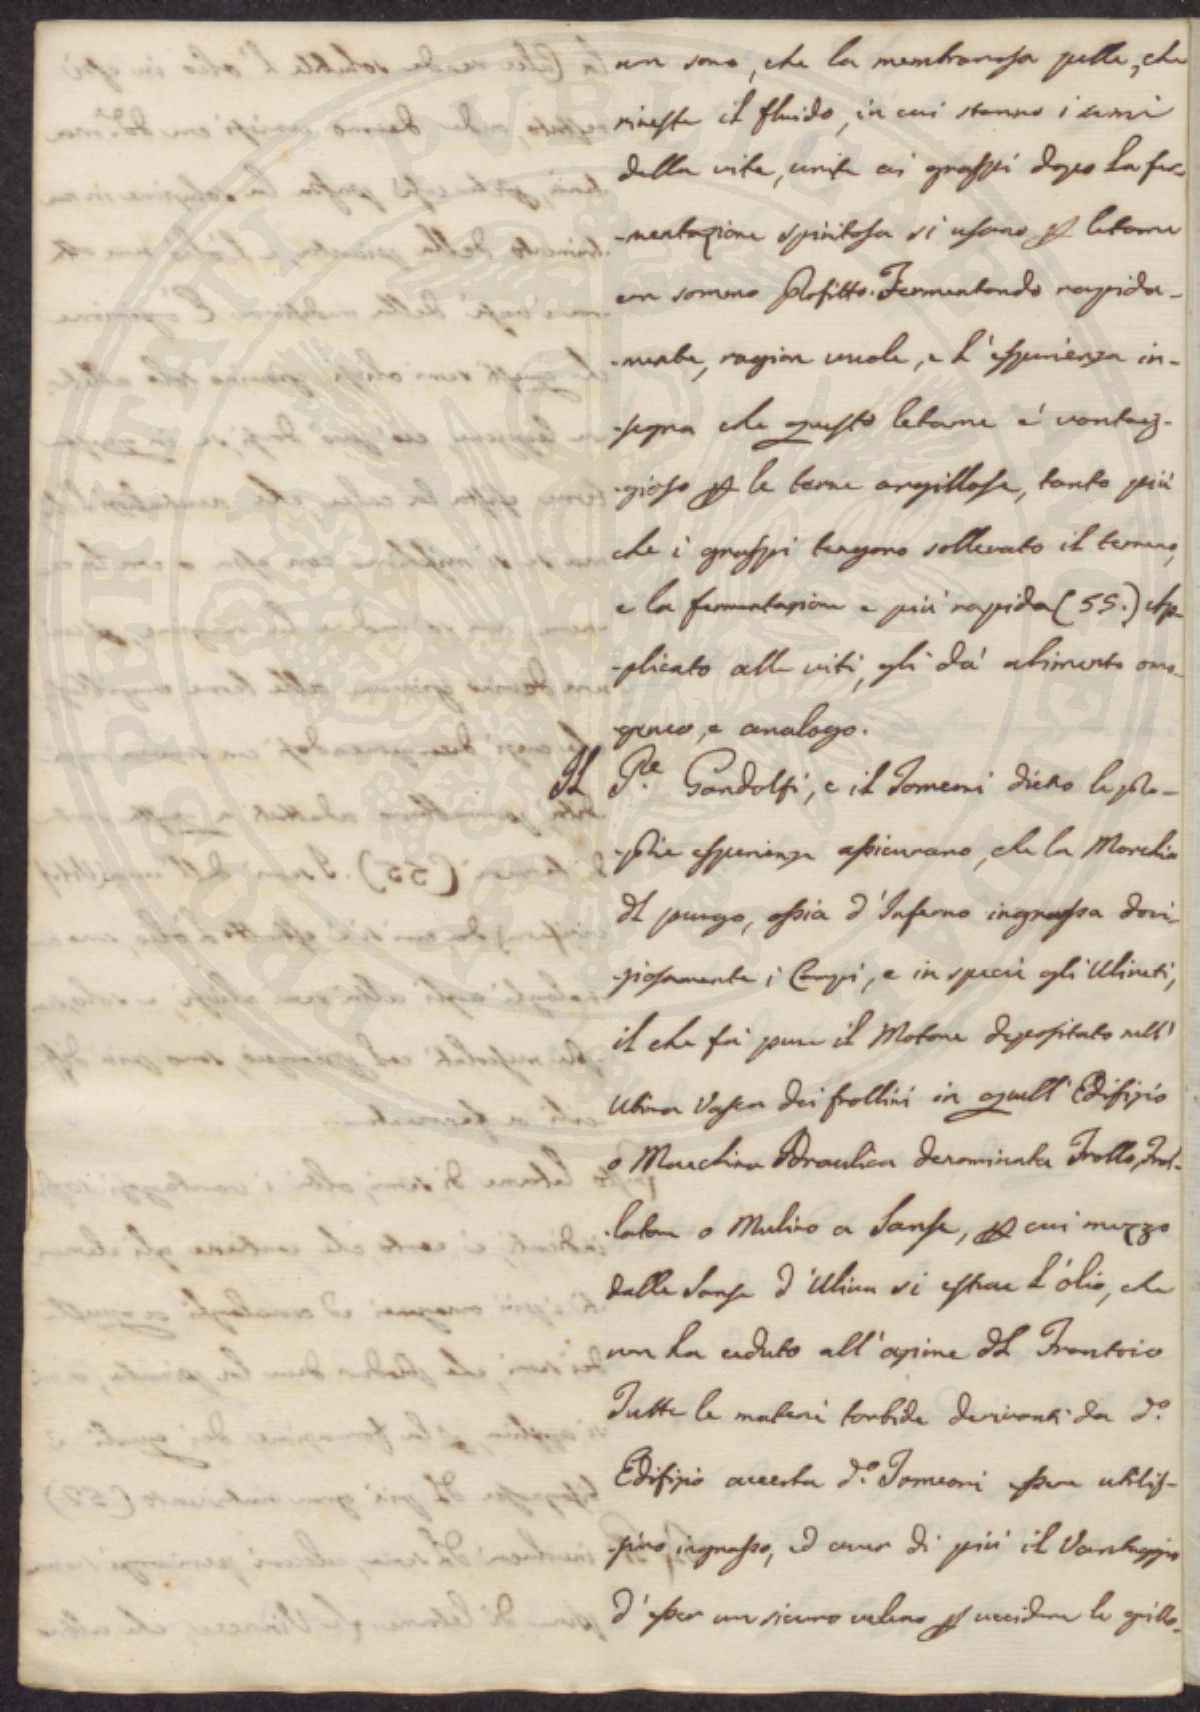 non sono, che la membranosa pelle, che
riveste il fluido, in cui stanno i semi
della vite, unite ai graspi dopo la fer-
-mentazione spiritosa si usano p letame
con sommo profitto. Fermentando rapida-
-mente, ragion vuole, e l'esperienza in-
-segna che questo letame e' vantag-
-gioso p le terre argillose, tanto più
che i graspi tengono sollevato il terreno,
e la fermentazione e più rapida (55.) Ap-
-plicato alle viti, gli dà alimento omo-
geneo, e analogo.
Il P.re Gandolfi, e il Tomeoni dietro le pro-
-prie esperienze assicurano, che la Morchia
dl purgo, ossia d'Inferno ingrassa dovi-
-ziosamente i Campi, e in specie gli Uliveti,
il che fà pure il Motone depositato nell'
Ultima Vasca dei frollini in quell'Edifizio
o Macchina Idraulica denominata Frollo, Frol-
-latore o Mulino a Sanse, p cui mezzo
dalle Sanse d'Uliva si estrae l'olio, che
non ha ceduto all'azione dl Frantoio
Tutte le materie torbide derivanti da d.o
Edifizio accerta d.o Tomeoni essere utilis-
-simo ingrasso, ed aver di più il Vantaggio
d'esser un sicuro veleno p uccidere le grillo-